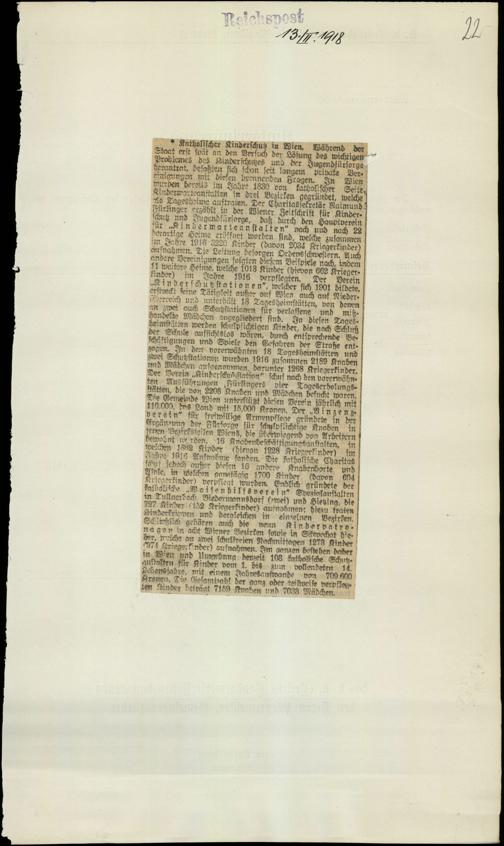 Reichspost
13/II. 1918
22
* Katholischer Kinderschutz in Wien. Während der
Staat erst spät an den Versuch der Lösung des wichtigen
Problemes des Kinderschutzes und der Jugendfürsorge
herantrat, befaßten sich schon seit langem private Ver-
einigungen mit diesen brennenden Fragen. In Wien
wurden bereits im Jahre 1830 von katholischer Seite
Kinderwartanstalten in drei Bezirken gegründet, welche
als Tagesheime auftraten. Der Charitassekretär Raimund
Fürlinger erzählt in der Wiener Zeitschrift für Kinder-
schutz und Jugendfürsorge, daß durch den Hauptverein
für „Kinderwartanstalten" nach und nach 22
derartige Heime eröffnet worden sind, welche zusammen
im Jahre 1916 3220 Kinder (davon 2034 Kriegerkinder)
aufnahmen. Die Leitung besorgen Ordensschwestern. Auch
andere Vereinigungen folgten diesem Beispiele nach, indem
11 weitere Heime, welche 1018 Kinder (hievon 662 Krieger-
kinder) im Jahre 1916 verpflegten. Der Verein
„Kinderschutzstationen", welcher sich 1901 bildete,
erstreckt seine Tätigkeit außer auf Wien auch auf Nieder-
österreich und unterhält 18 Tagesheimstätten, von denen
an zwei auch Schutzstationen für verlassene und miß-
handelte Mädchen angegliedert sind. In diesen Tages-
heimstätten werden schulpflichtigen Kinder, die nach Schluß
der Schule aufsichtslos wären, durch entsprechende Be-
schäftigungen und Spiele den Gefahren der Straße ent-
zogen. In den vorerwähnten 18 Tagesheimstätten und
zwei Schutzstationen wurden 1916 zusammen 2189 Knaben
und Mädchen aufgenommen, darunter 1268 Kriegerkinder.
Der Verein „Kinderschutzstation" schuf nach den vorerwähn-
ten Ausführungen Fürlingers vier Tageserholungs-
stätten, die von 2206 Knaben und Mädchen besucht waren.
Die Gemeinde Wien unterstützt diesen Verein jährlich mit
110.000, das Land mit 15,000 Kronen. Der „Vinzenz-
verein" für freiwillige Armenpflege gründete in der
Ergänzung der Fürsorge für schulpflichtige Knaben in
jenen Bezirksteilen Wiens, die überwiegend von Arbeitern
bewohnt werden, 16 Knabenbeschäftigungsanstalten, in
welchen 1882 Kinder (hievon 1228 Kriegerkinder) im
Jahre 1916 Aufnahme fanden. Die katholische Charitas
schuf jedoch außer diesen 16 andere Knabenhorte und
Asyle, in welchen ganztägig 1700 Kinder (davon 694
Kriegerkinder) verpflegt wurden. Endlich gründete der
katholische „Waisenhilfsverein" Erziehanstalten
in Tullnerbach, Biedermannsdorf (zwei) und Hietzing, die
727 Kinder (152 Kriegerkinder) aufnahmen; hiezu traten
Kinderkrippen und dergleichen in einzelnen Bezirken.
Schließlich gehören auch die neun Kinderpatro-
nagen in acht Wiener Bezirken sowie in Schwechat hie-
her, welche an zwei schulfreien Nachmittagen 1278 Kinder
(974 Kriegerkinder) aufnahmen. Im ganzen bestehen daher
in Wien und Umgebung derzeit 108 katholische Schutz-
anstalten für Kinder vom 1. bis zum vollendeten 14.
Lebensjahre, mit einem Jahresaufwande von 709.600
Kronen. Die Gesamtzahl der ganz oder teilweise verpfleg-
ten Kinder beträgt 7159 Knaben und 7033 Mädchen.